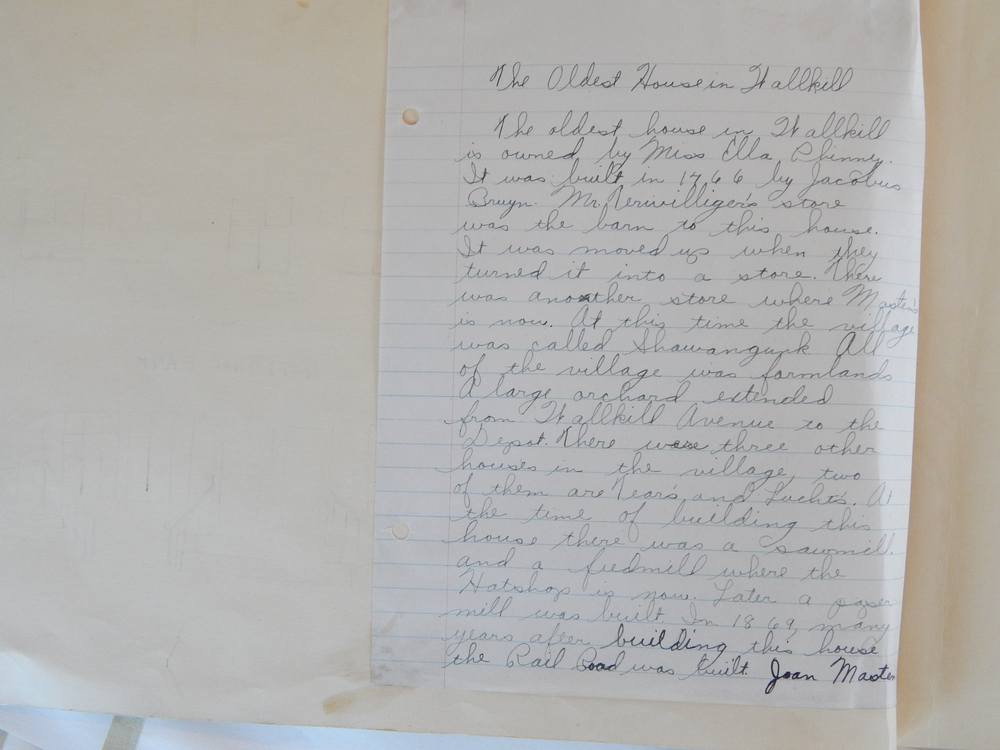 The Oldest House in Wallkill
The oldest house in Wallkill
is owned by Miss Ella Phinney.
It was built in 1766 by Jacobus
Bruyn. Mr. Terwilliger's store
was the barn to this house.
It was moved up when they
turned it into a store. There
was another store where Masten's
is now. At this time the village
was called Shawangunk All
of the village was farmlands
A large orchard extended
from Wallkill Avenue to the
Depot. There were three other
houses in the village, two
of them are Tears, and Lucht's. At
the time of building this
house there was a sawmill
and a feedmill where the
Hatshop is now. Later a paper
mill was built. In 1869, many
years after building this house
the Rail Road was built. Joan Masten